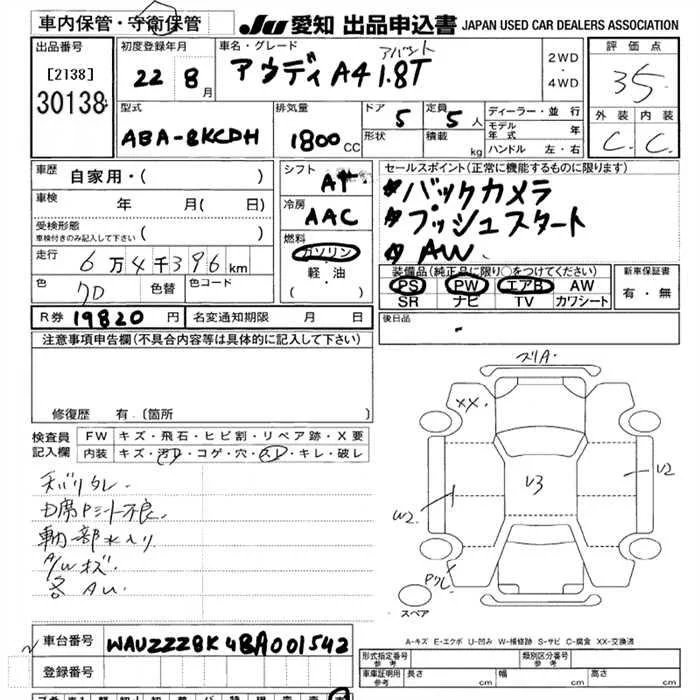 車内保管・守衛保管
JU 愛知 出品申込書 JAPAN USED CAR DEALERS ASSOCIATION
出品番号
[2138]
30138
初度登録年月
22 8月
車名・グレード
アバント
アウディ A4 1.8T
2WD
・
4WD
評価点
3.5
外装 内装
C C
型式
ABA-8KCDH
排気量
1800 CC
ドア 5
形状
定員 5人
積載 kg
ディーラー・並行
モデル年式 年
ハンドル 左・右
車歴
自家用・( )
車検 年 月( 日)
受検形態
車検付きのみ記入して下さい ( )
走行 6万4千396km
色 クロ 色替 色コード
R券 19820円 名変通知期限 月 日
シフト AT
冷房 AAC
燃料
ガソリン
・
軽・油
( )
セールスポイント(正常に機能するものに限ります)
バックカメラ
プッシュスタート
AW
装備品(純正品に限り○をつけてください)
PS PW エアB AW
SR ナビ TV カワシート
新車保証書
有・無
後日品
注意事項申告欄(不具合内容等は具体的に記入して下さい)
修復歴 有〔箇所 〕
検査員
記入欄
FW キズ・飛石・ヒビ割・リペア跡・X要
内装 キズ・汚レ・コゲ・穴・スレ・キレ・破レ
天バリタレ
D席Pシート不良
A/Wキズ
各AU
ズリA
XX
U2
W2
U3
スペア
A-キズ E-エクボ U-凹み W-補修跡 S-サビ C-腐食 XX-交換済
車台番号 WAUZZZ8K4BA001542
登録番号
形式指定番号
参考
類別区分番号
参考
車庫証明用
参考
長さ cm 幅 cm 高さ cm